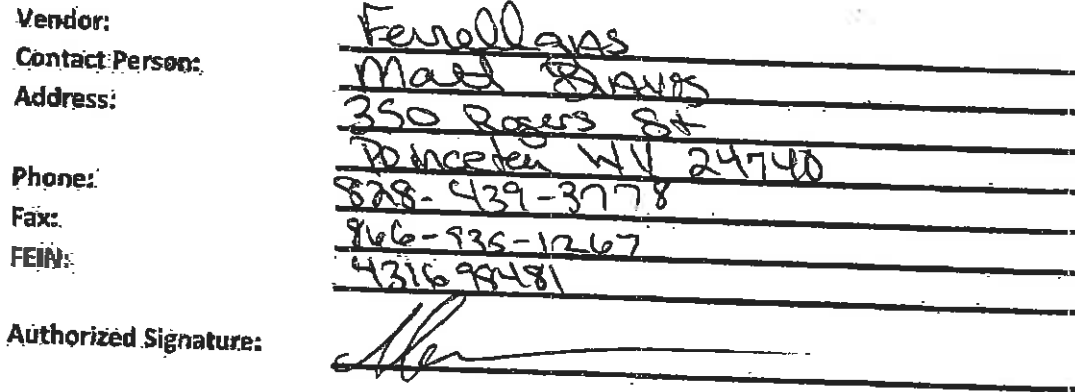 Vendor: Ferrellgas
Contact Person: Matt Davis
Address: 350 Rogers St
Princeton WV 24740
Phone: 828-439-3778
Fax: 866-935-1267
FEIN: 431698481
Authorized Signature: